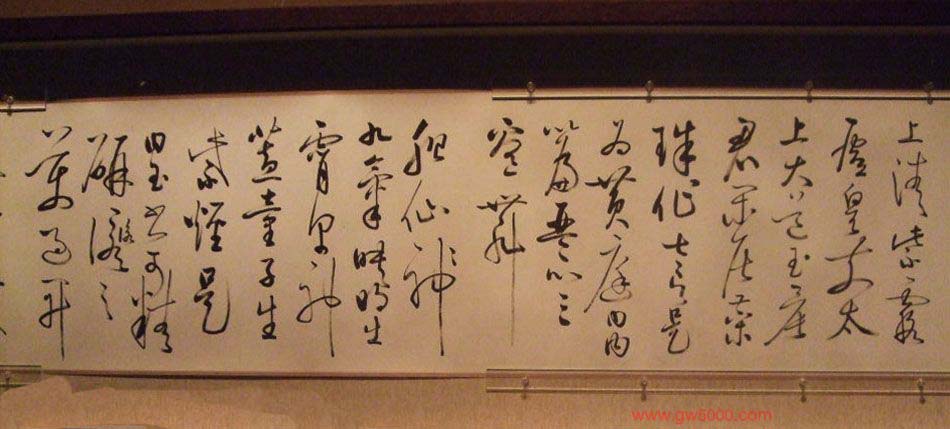 上清紫霞
虛皇前太
上大道玉晨
君閑居蕊
珠作七言是
為黃庭內
篇琴心三
疊舞
胎仙
九氣映明出
霄間神
蓋童子生
紫煙是
曰玉書可精
研詠之
萬過昇
www.gw5000.com